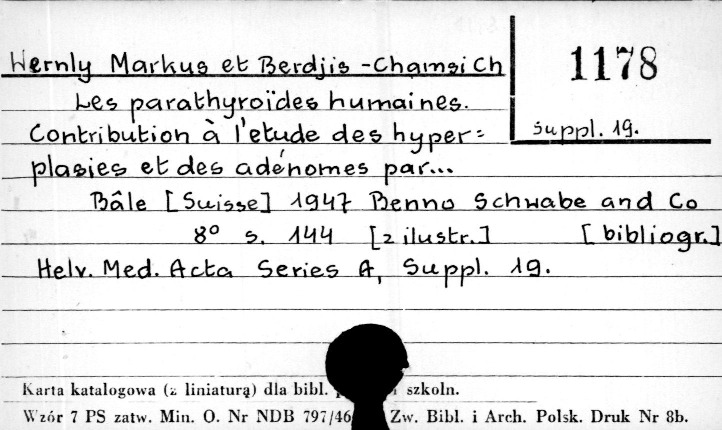 Wernly Markus et Berdjis-Chamsi Ch
1178
Les parathyroïdes humaines.
Contribution à l'etude des hyper=
suppl. 19.
plasies et des adénomes par...
Bâle [Suisse] 1947 Benno Schwabe and Co
8° s. 144 [z ilustr.] [bibliogr.]
Helv. Med. Acta Series A, Suppl. 19.
Karta katalogowa (z liniaturą) dla bibl. szkoln.
Wzór 7 PS zatw. Min. O. Nr NDB 797/46 Zw. Bibl. i Arch. Polsk. Druk Nr 8b.